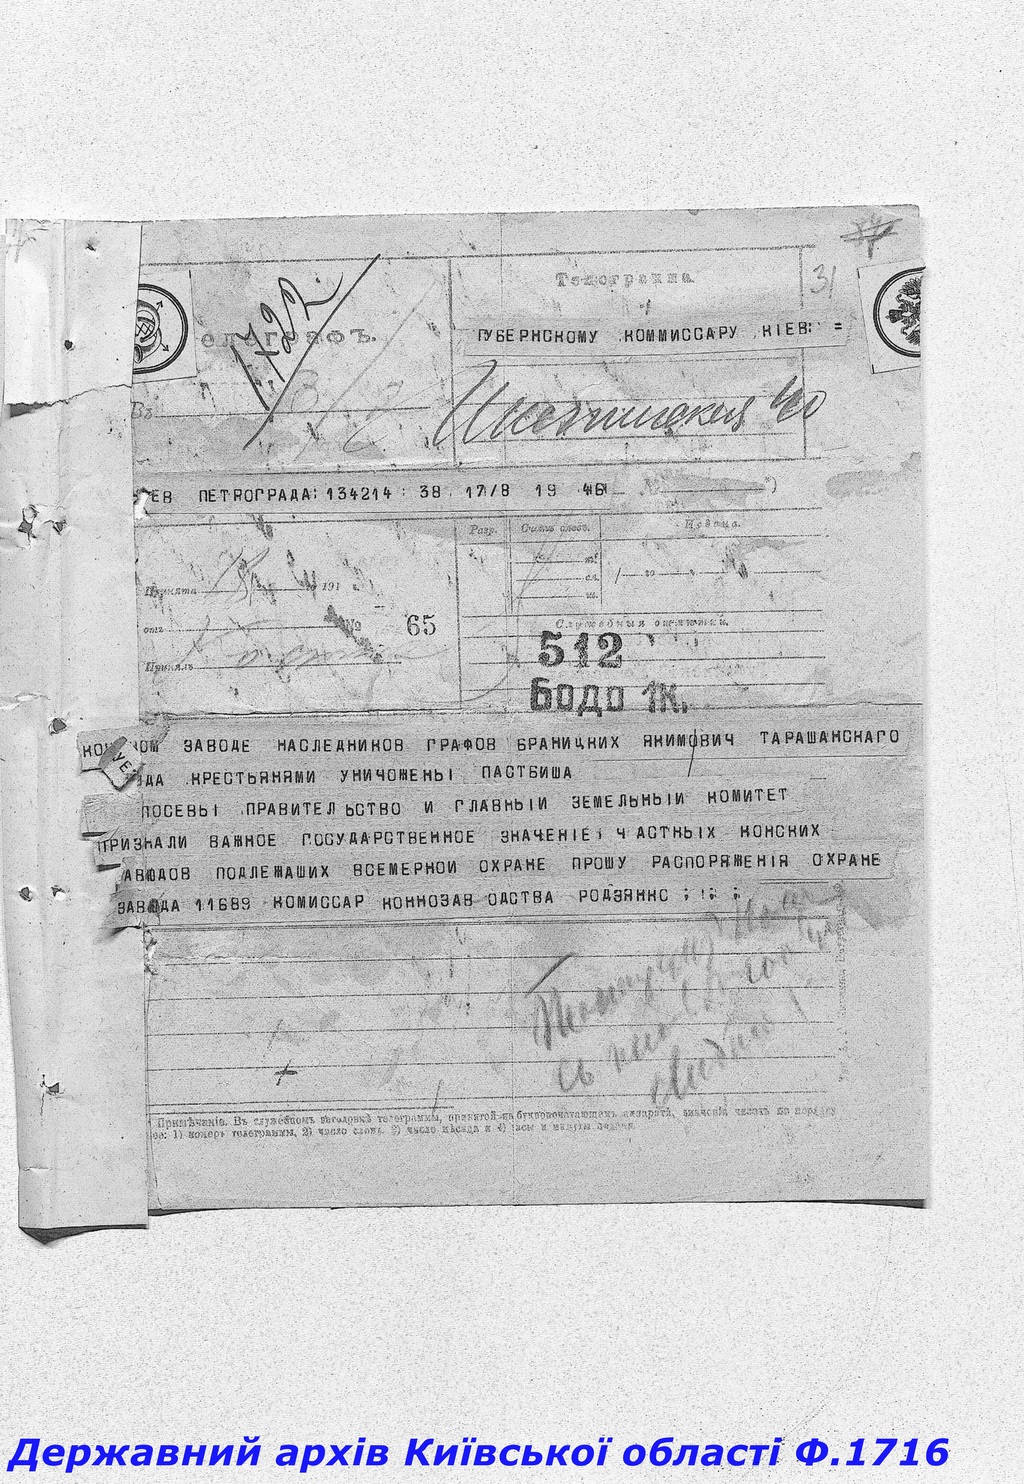 31
Телеграмма.
1722.
елеграфъ.
ГУБЕРНСКОМУ КОММИССАРУ КІЕВ =
Въ
ЕВ ПЕТРОГРАДА: 134214 : 38 17/8 19 46
Разр.
Счетъ словъ.
Подача.
Принята 191
отъ № 65
Принялъ
Служебныя отмѣтки.
512
Бодо 1К.
ЗАВОДЕ НАСЛЕДНИКОВ ГРАФОВ БРАНИЦКИХ ЯКИМОВИЧ ТАРАШАНСКАГО
УЕ ДА КРЕСТЬЯНАМИ УНИЧОЖЕНЫ ПАСТБИША
ПОСЕВЫ ПРАВИТЕЛЬСТВО И ГЛАВНЫЙ ЗЕМЕЛЬНЫЙ КОМИТЕТ
ПРИЗНАЛИ ВАЖНОЕ ГОСУДАРСТВЕННОЕ ЗНАЧЕНІЕ ЧАСТНЫХ КОНСКИХ
ЗАВОДОВ ПОДЛЕЖАШИХ ВСЕМЕРНОЙ ОХРАНЕ ПРОШУ РАСПОРЯЖЕНІЯ ОХРАНЕ
ЗАВОДА 11689 КОМИССАР КОННОЗАВОДСТВА РОДЗЯНКС
Примѣчаніе. Въ служебномъ заголовкѣ телеграммы, принятой на буквопечатающемъ аппаратѣ, значенія чиселъ по порядку
ое: 1) номеръ телеграммы, 2) число словъ 3) число мѣсяца и 4) часы и минуты подачи.
Державний архів Київської області Ф.1716